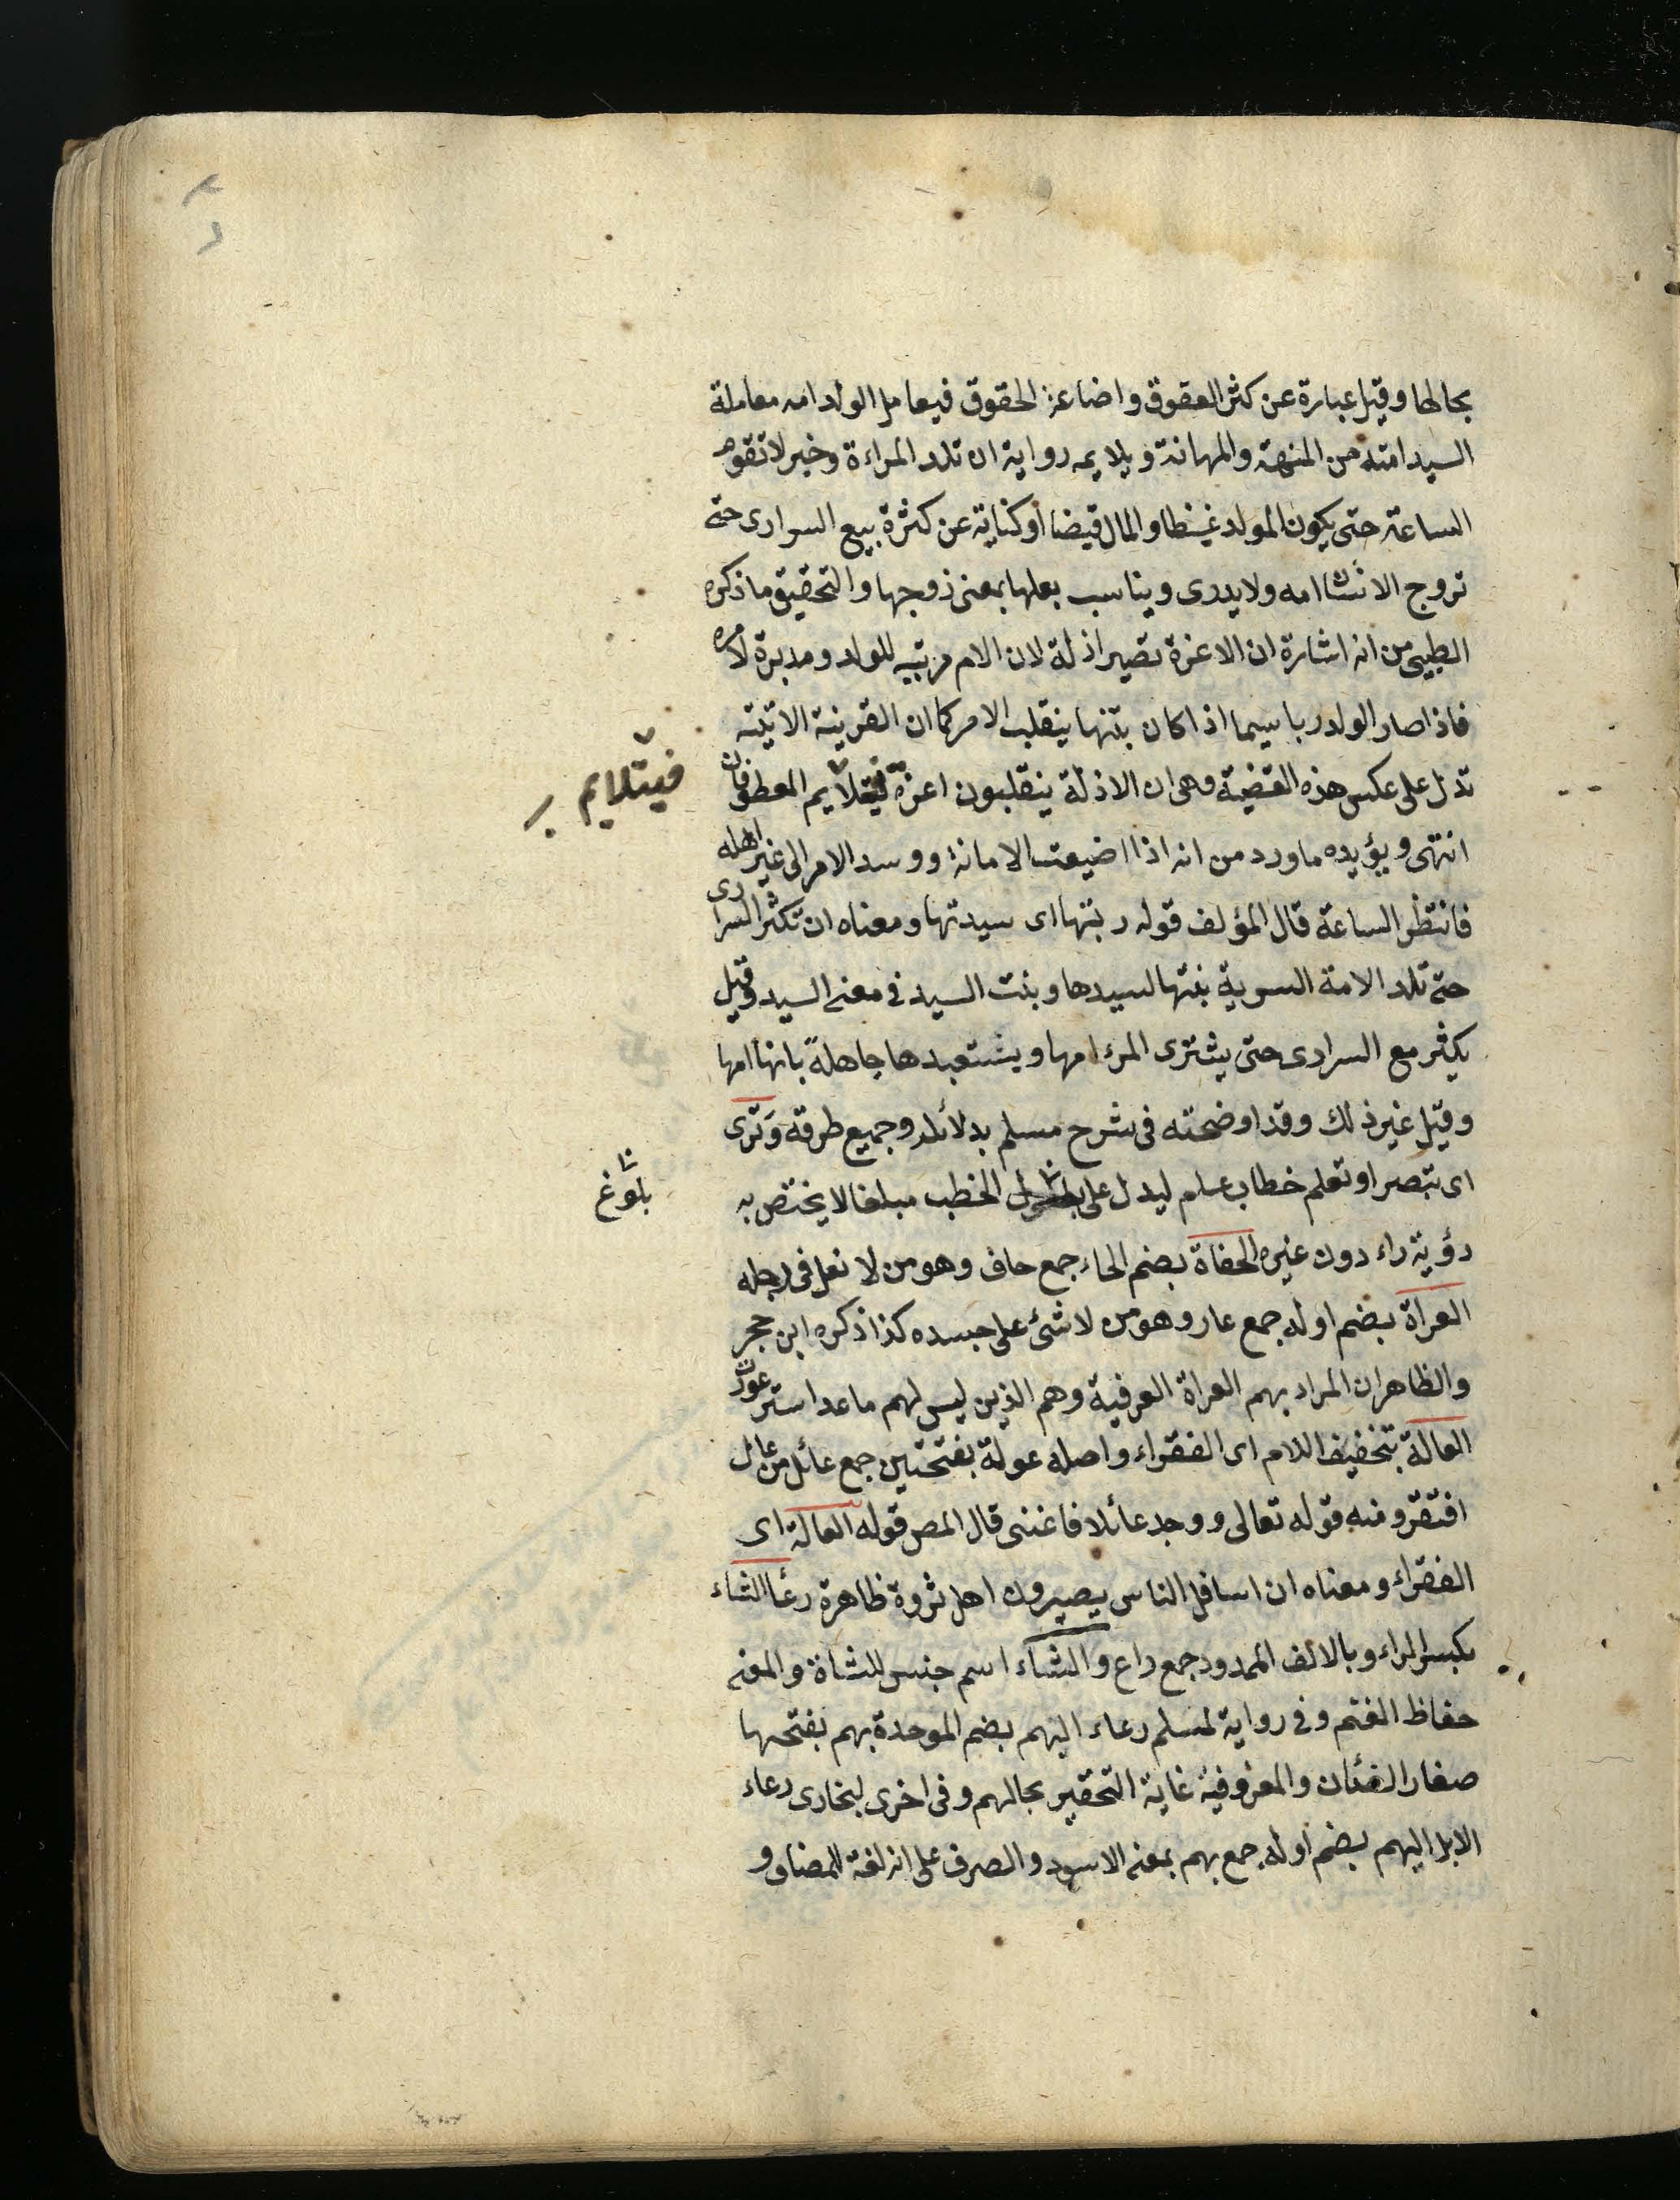 بحالها وقيل عبارة عن كثر العقوق واضاعة الحقوق فيعامل الولد امه معاملة
السيد امته من المنهة والمهانة ويلايمه رواية ان تلد المراءة وخبر لا تقوم
الساعة حتى يكون المولد غيظا والمال قيضا او كناية عن كثرة بيع السرارى حتى
تزوج الانسان امه ولا يدرى ويناسب بعلها بمعنى زوجها والتحقيق ما ذكره
الطيبى من انه اشارة ان الاعزة تصير اذلة لان الام مربية للولد ومدبرة لامره
فاذا صار الولد ربا سيما اذا كان بنتها ينقلب الامر كما ان القرينة الاتية
تدل على عكس هذه القضية وهى ان الاذلة ينقلبون اعزة فيتلايم المعطوفان
فيتلايم
انتهى ويؤيده ما ورد من انه اذا اضيعت الامانة ووسد الامر الى غير اهله
فانتظر الساعة قال المؤلف قوله ربتها اى سيدتها ومعناه ان تكثر السرارى
حتى تلد الامة السرية بنتها لسيدها وبنت السيد فى معنى السيد وقيل
يكثر مع السرارى حتى يشترى المرء امها ويشتعبدها جاهلة بانها امها
وقيل غير ذلك وقد اوضحته فى شرح مسلم بدلائله وجميع طرقه وترى
اى تبصر او تعلم خطاب عام ليدل على الخطب مبلغا لا يختص به
بلوغ
رؤية راء دون غيره الحفاة بضم الحاء جمع حاف وهو من لا نعل فى رجله
العراة بضم اوله جمع عار وهو من لا شئ على جسده كذا ذكره ابن حجر
والظاهر ان المراد بهم العراة العرفية وهم الذين ليس لهم ما عدا ستر عورة
العالة بتخفيف اللام اى الفقراء واصله عولة بفتحتين جمع عائل من عال
افتقر ومنه قوله تعالى ووجد عائلا فاغنى قال المص قوله العالة اى
الفقراء ومعناه ان اسافل الناس يصيرون اهل ثروة ظاهرة رعأ الشاء
بكسر الراء وبالالف الممدود جمع راع والشاء اسم جنس للشاة والمعنى
حفاظ الغنم وفى رواية لمسلم رعاء البهم بضم الموحدة بهم بفتحها
صغار الضئان والمعز وفيه غاية التحقير بحالهم وفى اخرى لبخارى رعاء
الابل البهم بضم اوله جمع بهم بمعنى الاسود والصرف على انه لغة للمضاف و